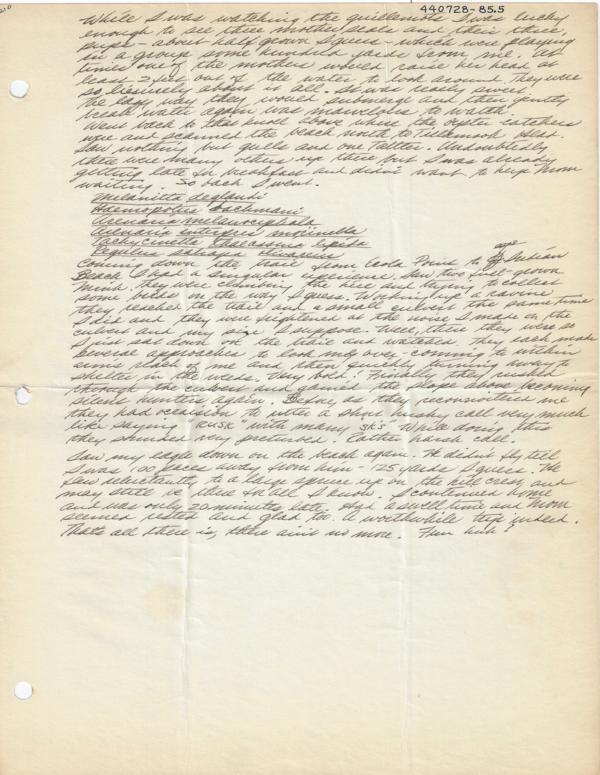 440728-85.5
While I was watching the guillemots I was lucky
enough to see three mother seals and their three
pups - about half grown I guess - which were playing
in a group some hundred yards from me. At
times one of the mothers would raise her head at
least 2 feet out of the water to look around. They were
so leisurely about it all. It was really sweet.
The lazy way they would submerge and then gently
break water again was marvelous to watch.
Went back to the knoll above where the oyster catchers
were and scanned the beach north to Tillamook Head.
Saw nothing but gulls and one Tattler. Undoubtedly
there were many others up there but I was already
getting late for breakfast and didn't want to keep Mom
waiting. So back I went.
Melanitta deglandi
Haemopotus bachmani
Arenaria melanocephala
Arenaria interpres morinella
Tachycineta thalassina lepida
Regulus satrapa olivaceus
Coming down the trail from Ecola Point to Indian
Beach I had a singular experience. Saw two full-grown
Mink. They were climbing the hill and trying to collect
some birds on the way I guess. Working up a ravine
they reached the trail and a small culvert the same time
I did and they were frightened at the noise I made on the
culvert and my size I suppose. Well, there they were so
I just sat down on the trail and watched. They each made
several approaches to look me over - coming to within
arms reach of me and then quickly turning away to
shelter in the weeds. Very bold! Finally they rushed
through the culvert and gained the slope above becoming
silent hunters again. Before, as they reconnoitered me
they had occasion to utter a shrill husky call very much
like saying "kusk" with many sk's. While doing this
they sounded very preturbed. Rather harsh call.
Saw my eagle down on the beach again. He didn't fly till
I was 100 paces away from him - 125 yards I guess. He
flew reluctantly to a large spruce up on the hill crest and
may still be there for all I know. I continued home
and was only 20 minutes late. Had a swell time and Mom
seemed rested and glad too. A worthwhile trip indeed.
That's all there is, there ain't no more. Fun huh?